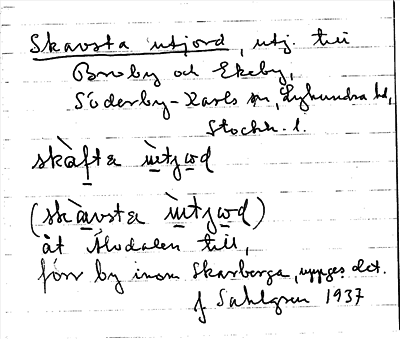 Skavsta utjord, utj. till
Broby och Ekeby,
Söderby-Karls sn, Lyhundra hd,
Stockh. l.
skàfta ùtjwd
(skàvsta ùtjwd)
åt Älvdalen till,
förr by inom Skarberga, uppges det.
J Sahlgren 1937